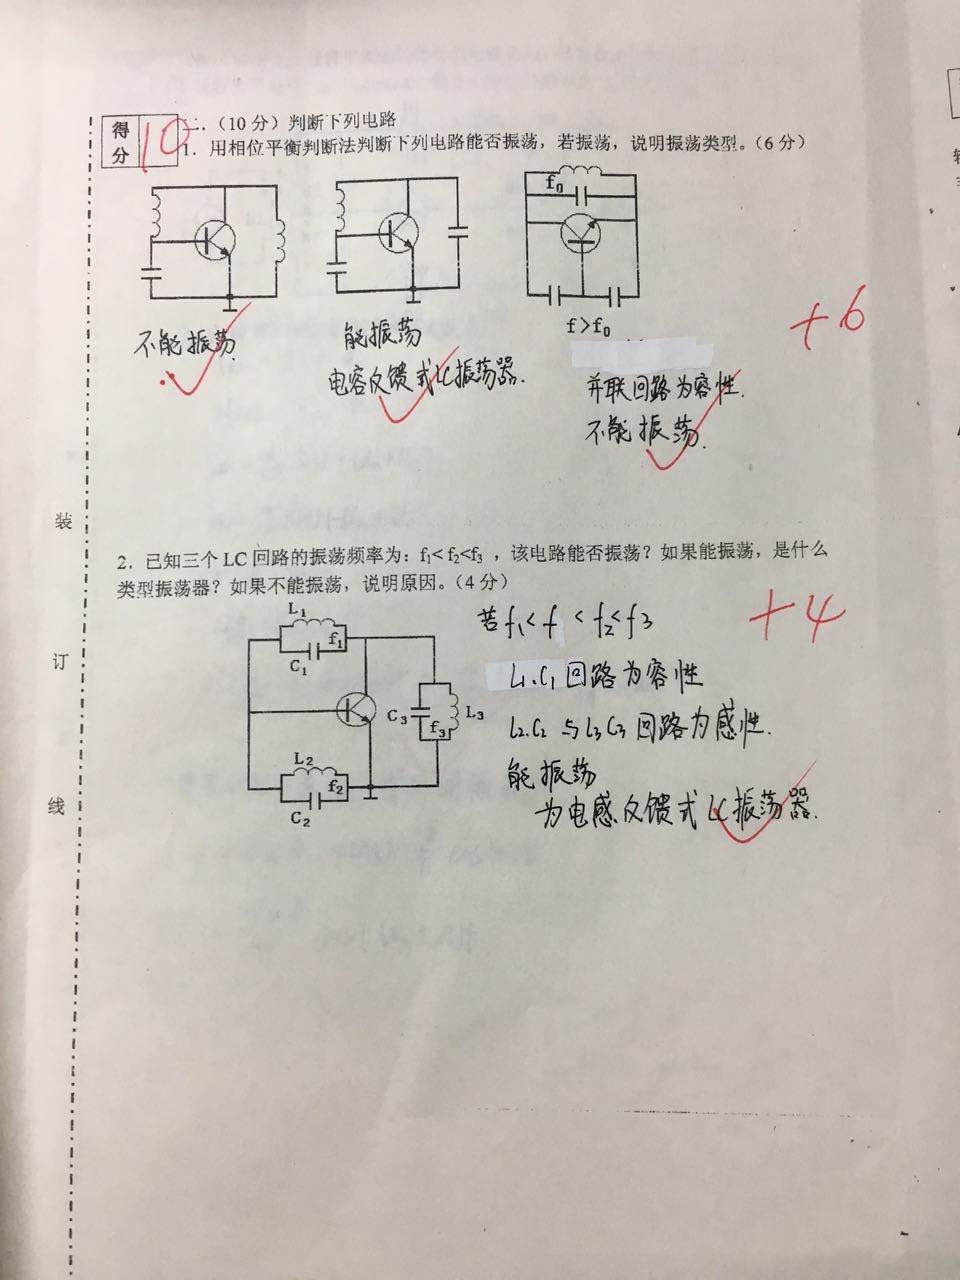 得分
10
二.（10分）判断下列电路
1．用相位平衡判断法判断下列电路能否振荡，若振荡，说明振荡类型。（6分）
f₀
f>f₀
不能振荡.
能振荡
电容反馈式LC振荡器.
并联回路为容性.
不能振荡.
+6
2．已知三个LC回路的振荡频率为：f₁<f₂<f₃，该电路能否振荡？如果能振荡，是什么
类型振荡器？如果不能振荡，说明原因。（4分）
L₁
f₁
C₁
C₃
f₃
L₃
L₂
f₂
C₂
若f₁<f<f₂<f₃
L₁.C₁回路为容性
L₂.C₂与L₃C₃回路为感性.
能振荡
为电感反馈式LC振荡器.
+4
装
订
线